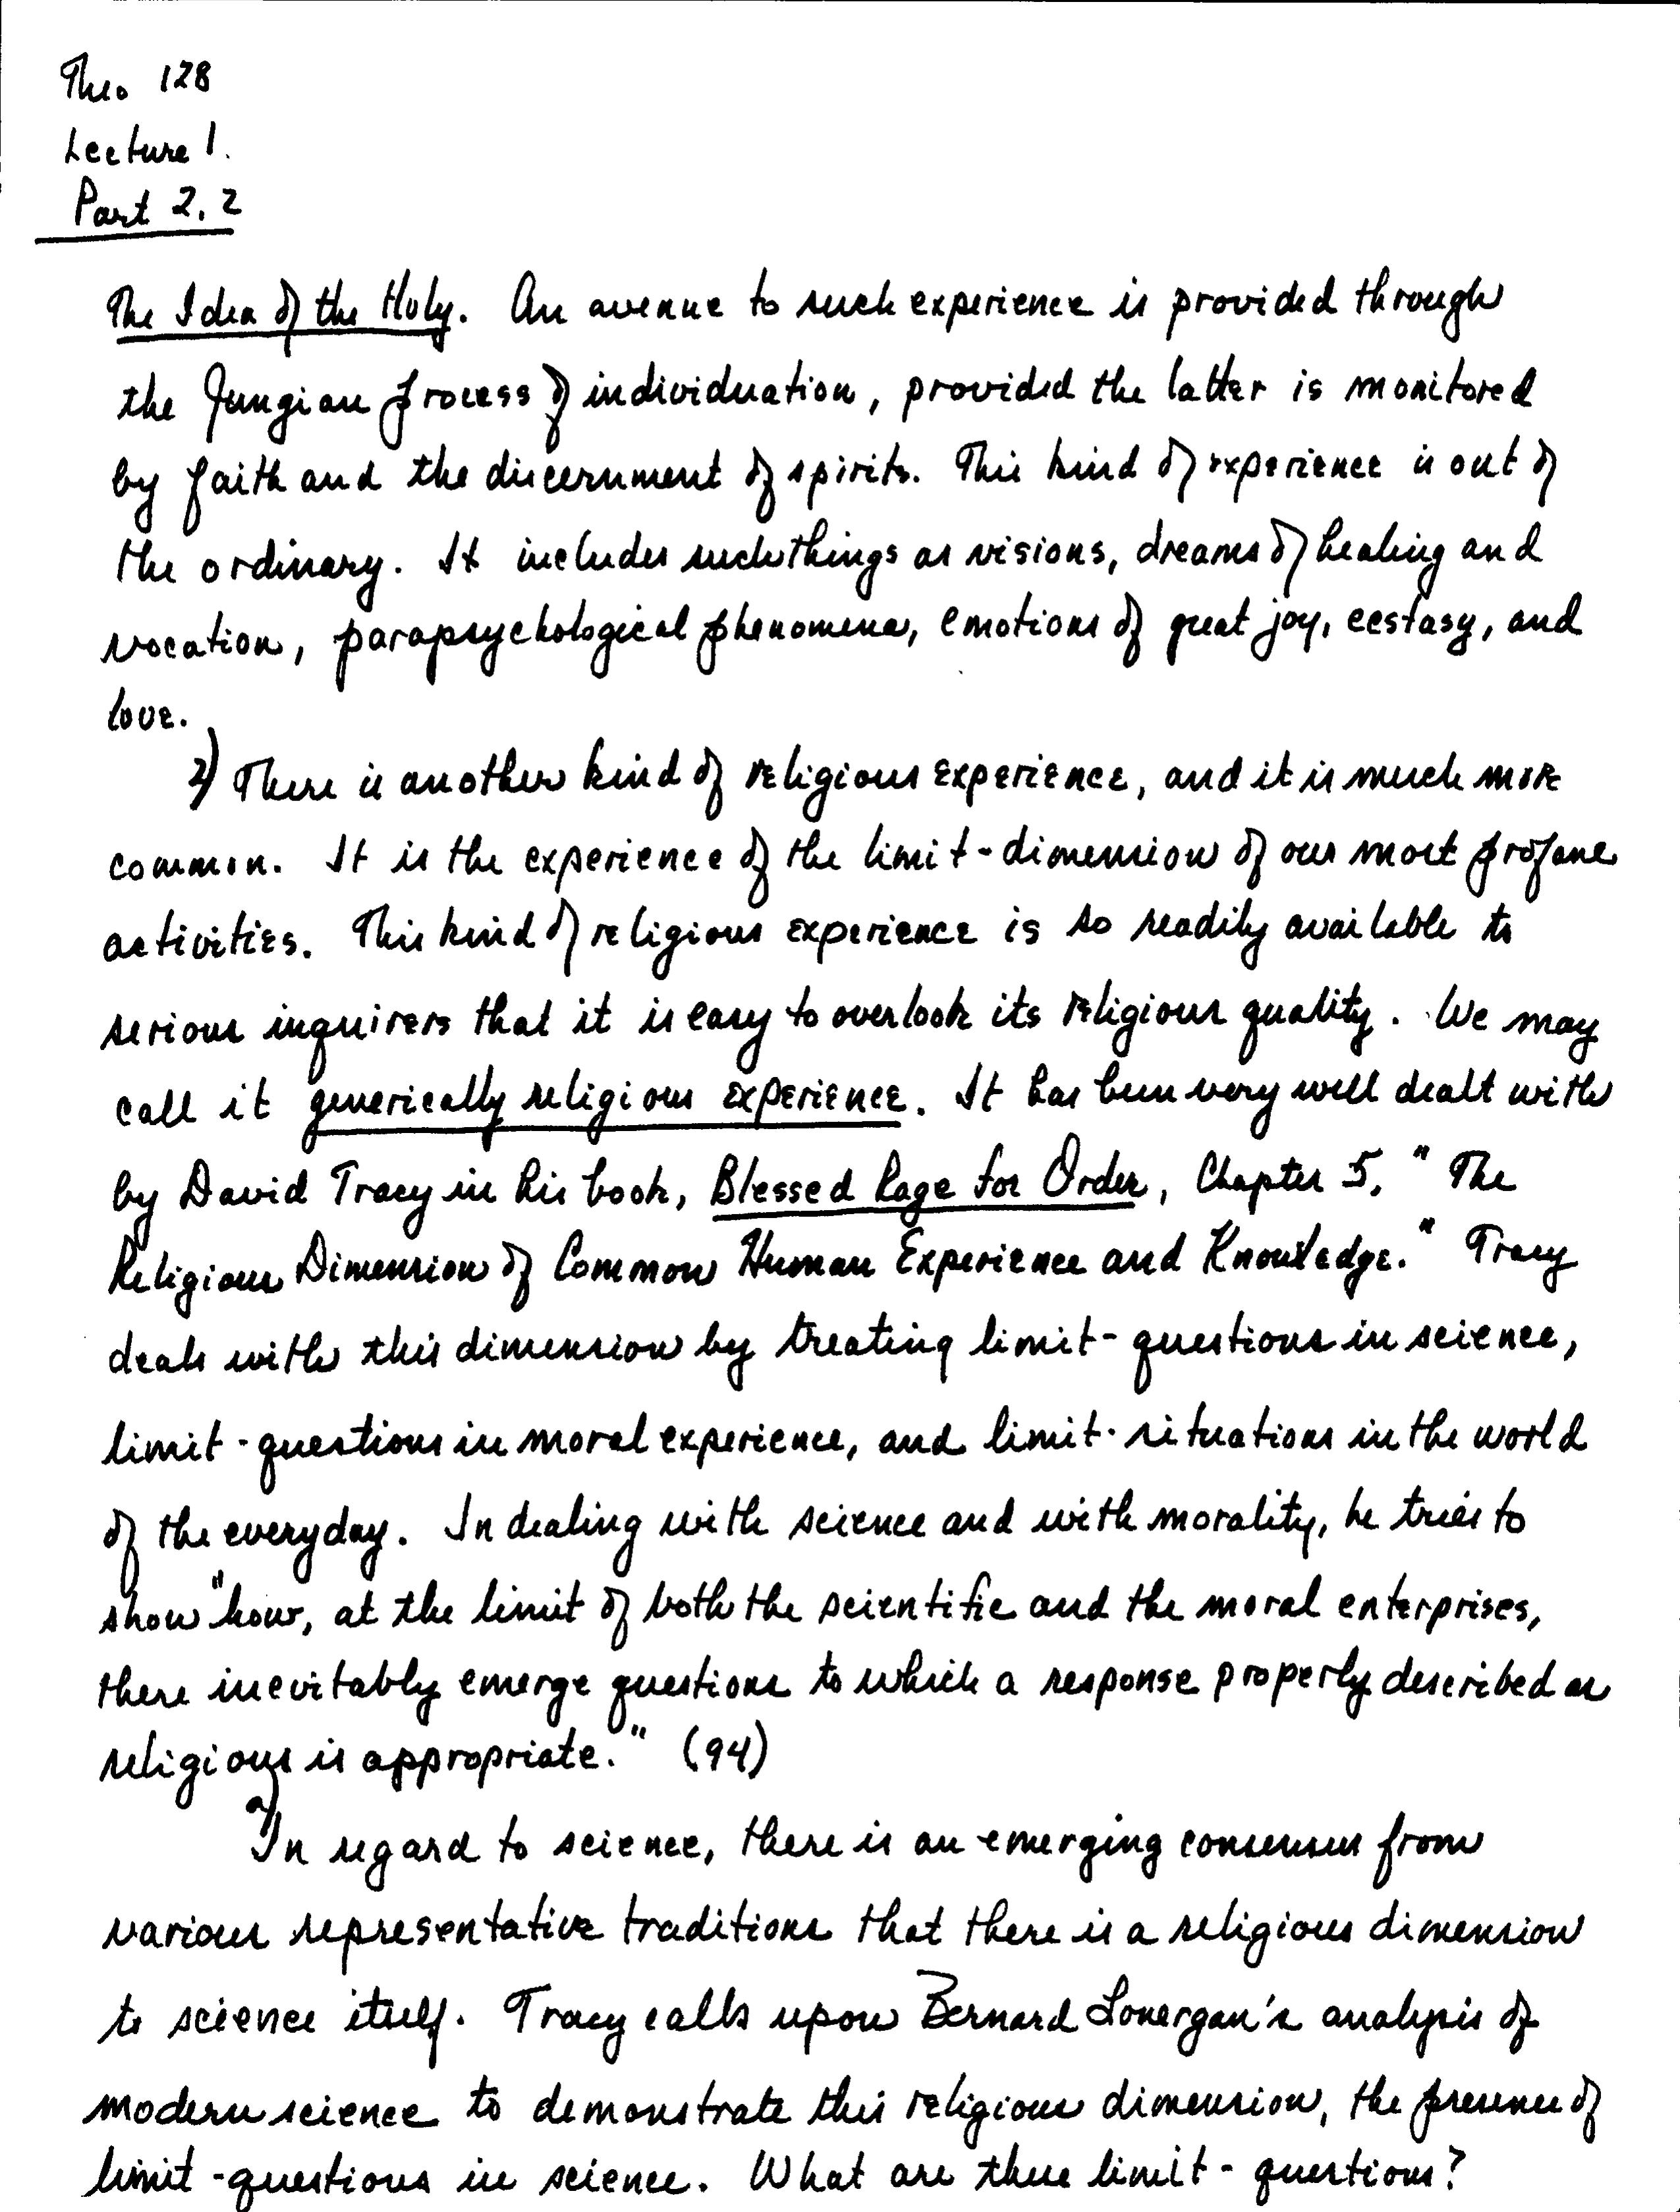 Theo 128
Lecture 1.
Part 2, 2
The Idea of the Holy. An avenue to such experience is provided through
the Jungian process of individuation, provided the latter is monitored
by faith and the discernment of spirits. This kind of experience is out of
the ordinary. It includes such things as visions, dreams of healing and
vocation, parapsychological phenomena, emotions of great joy, ecstasy, and
love.
2) There is another kind of religious experience, and it is much more
common. It is the experience of the limit-dimension of our most profane
activities. This kind of religious experience is so readily available to
serious inquirers that it is easy to overlook its religious quality. We may
call it generically religious experience. It has been very well dealt with
by David Tracy in his book, Blessed Rage for Order, Chapter 5, "The
Religious Dimension of Common Human Experience and Knowledge." Tracy
deals with this dimension by treating limit-questions in science,
limit-questions in moral experience, and limit-situations in the world
of the everyday. In dealing with science and with morality, he tries to
show "how, at the limit of both the scientific and the moral enterprises,
there inevitably emerge questions to which a response properly described as
religious is appropriate." (94)
a) In regard to science, there is an emerging consensus from
various representative traditions that there is a religious dimension
to science itself. Tracy calls upon Bernard Lonergan's analysis of
modern science to demonstrate this religious dimension, the presence of
limit-questions in science. What are these limit-questions?